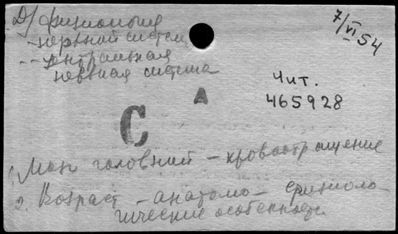 Д) физиология
- нервной систем
-- центральная
нервная система
7/VI 54
Чит.
465928
А
С
1. Мозг головний - кровообращение
2. Возраст - анатомо - физиоло
гические особенност.